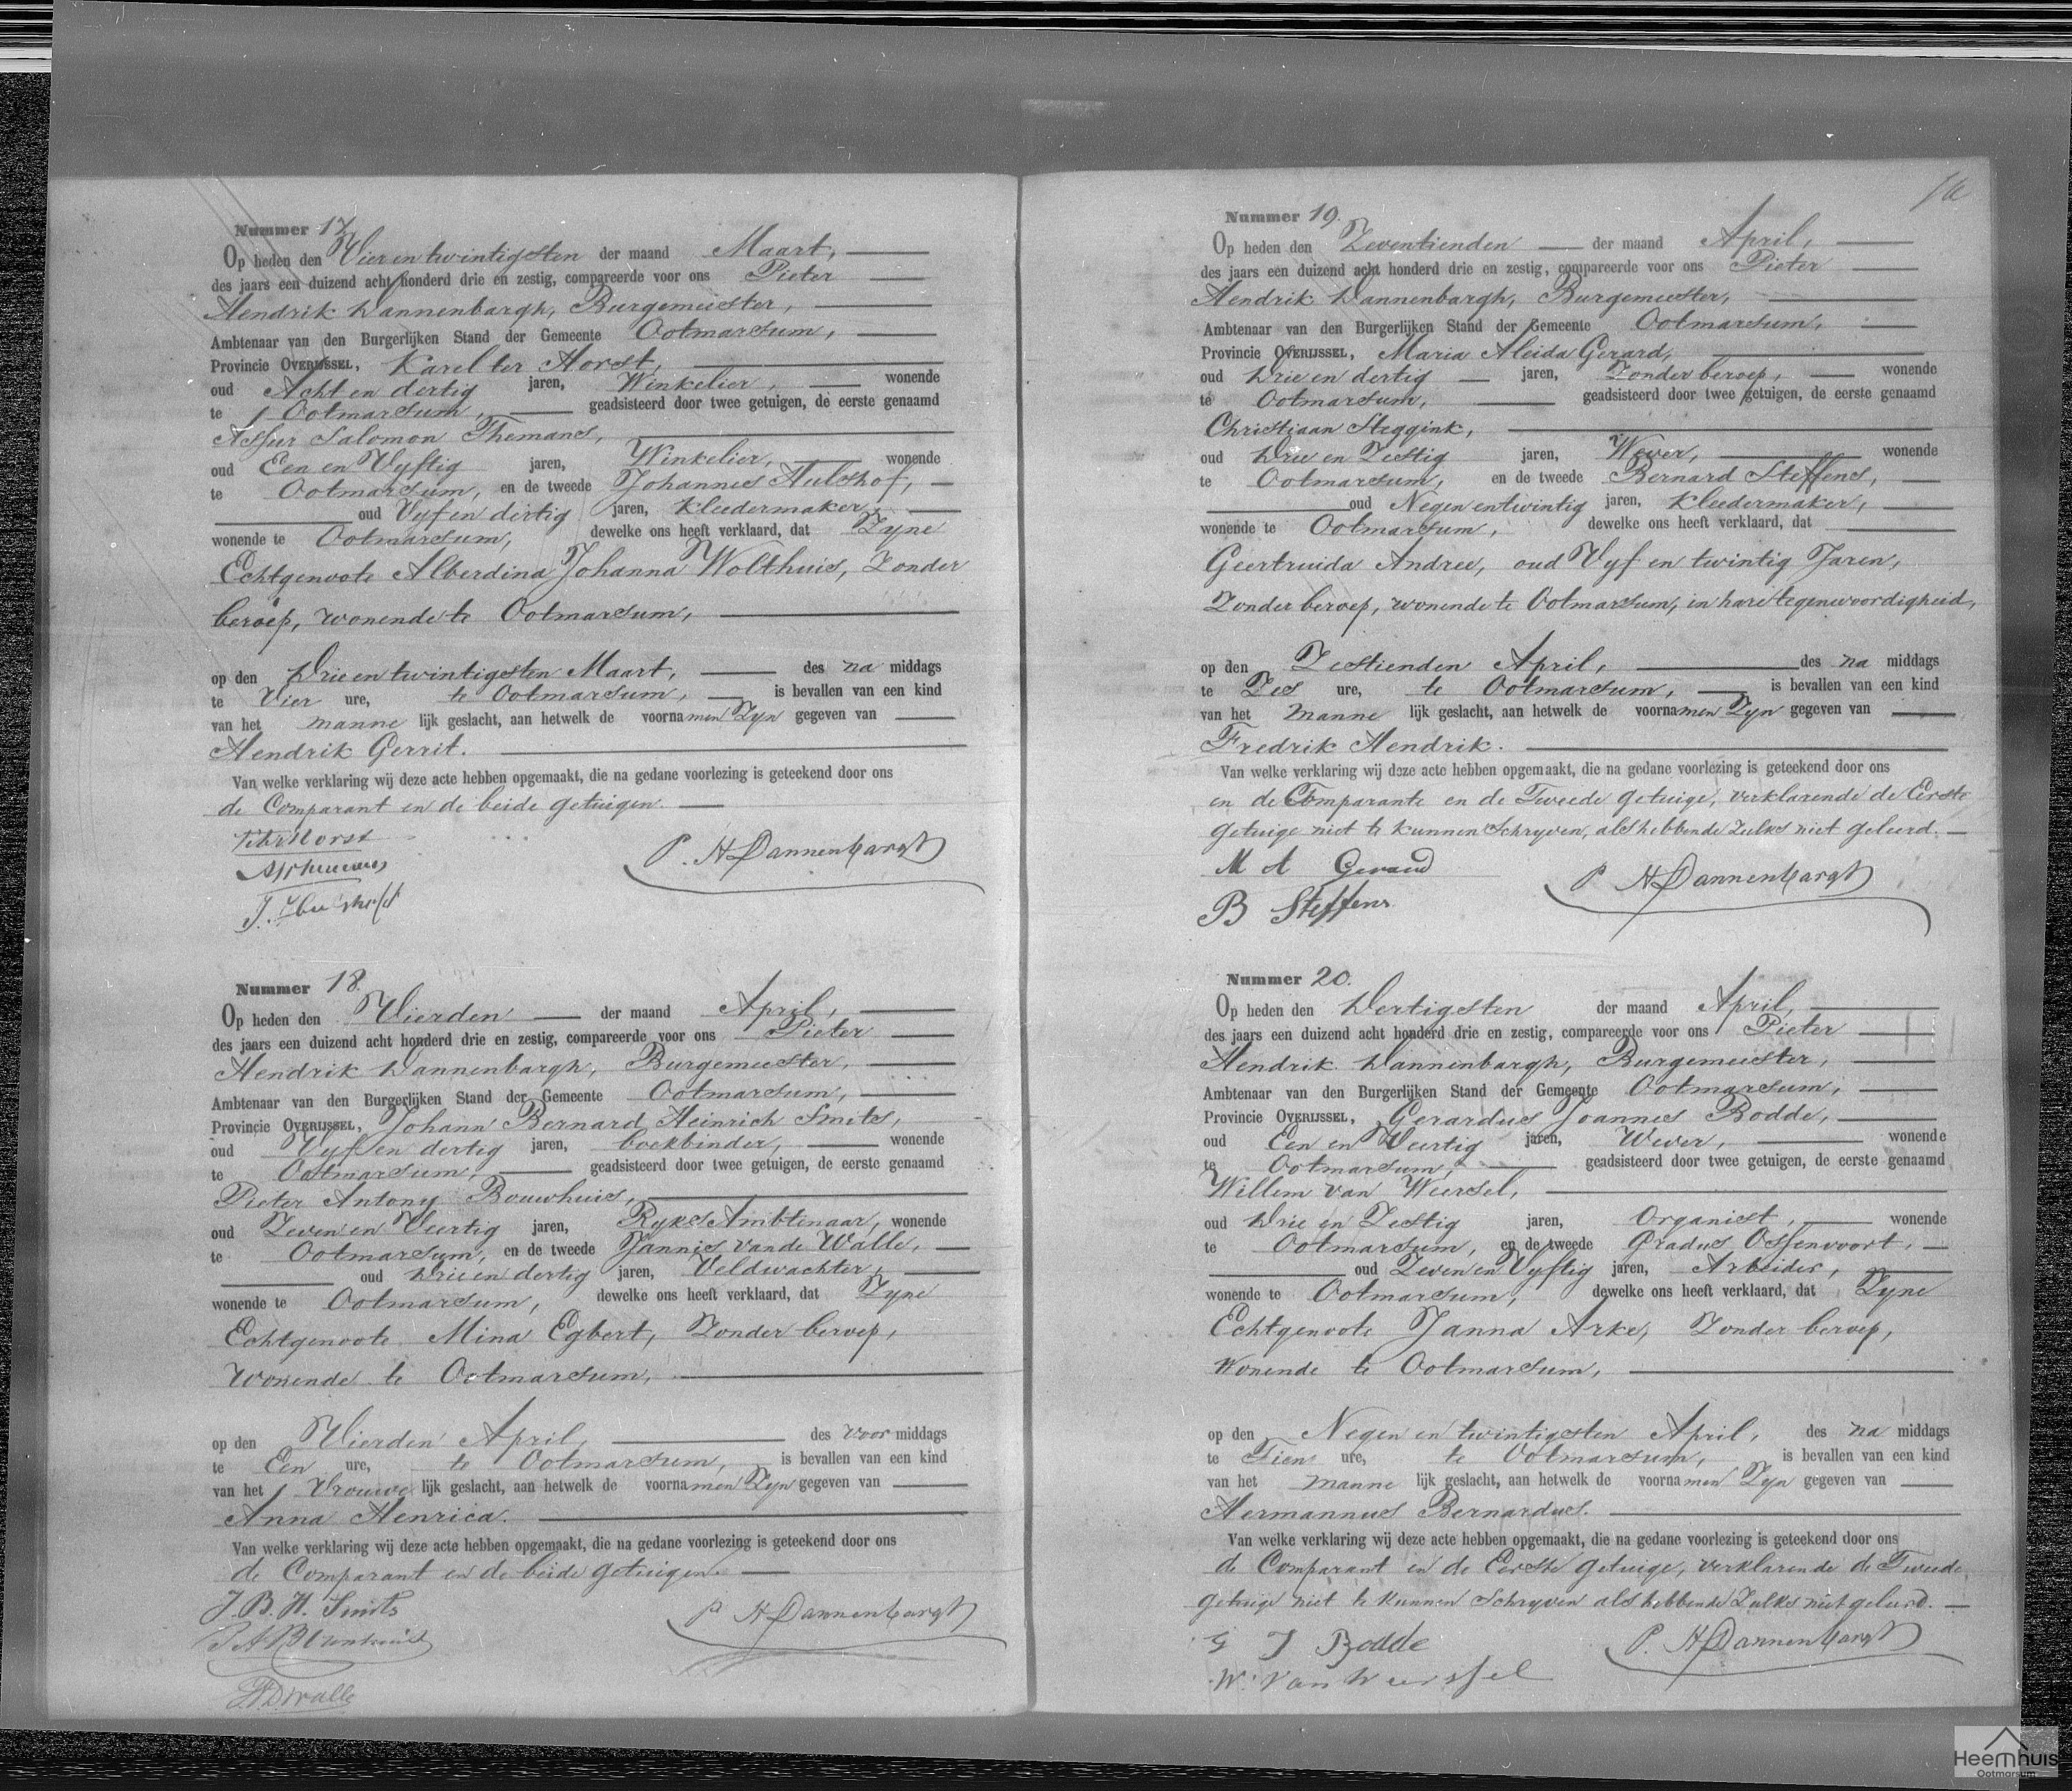 Nummer 17.
Op heden den Vier en twintigsten der maand Maart,
des jaars een duizend acht honderd drie en zestig, compareerde voor ons Pieter
Hendrik Dannenbargh, Burgemeester,
Ambtenaar van den Burgerlijken Stand der Gemeente Ootmarsum,
Provincie OVERIJSSEL, Karel ter Horst,
oud Acht en dertig jaren, Winkelier, wonende
te Ootmarsum, geadsisteerd door twee getuigen, de eerste genaamd
Assur Salomon Themans,
oud Een en Vyftig jaren, Winkelier, wonende
te Ootmarsum, en de tweede Johannes Hulshof,
oud Vyf en dertig jaren, Kleedermaker,
wonende te Ootmarsum, dewelke ons heeft verklaard, dat Zyne
Echtgenoote Alberdina Johanna Wolthuis, Zonder
beroep, wonende te Ootmarsum,
op den Drie en twintigsten Maart, des na middags
te Vier ure, te Ootmarsum, is bevallen van een kind
van het manne lijk geslacht, aan hetwelk de voornamen Zyn gegeven van
Hendrik Gerrit.
Van welke verklaring wij deze acte hebben opgemaakt, die na gedane voorlezing is geteekend door ons
de Comparant en de beide getuigen.
P. H Dannenbargh
Nummer 18.
Op heden den Vierden der maand April,
des jaars een duizend acht honderd drie en zestig, compareerde voor ons Pieter
Hendrik Dannenbargh, Burgemeester,
Ambtenaar van den Burgerlijken Stand der Gemeente Ootmarsum,
Provincie OVERIJSSEL, Johann Bernard Heinrich Smits,
oud Vyf en dertig jaren, boekbinder, wonende
te Ootmarsum, geadsisteerd door twee getuigen, de eerste genaamd
Pieter Antony Bouwhuis,
oud Zeven en Veertig jaren, Ryks Ambtenaar, wonende
te Ootmarsum, en de tweede Jannis van de Walle,
oud Drie en dertig jaren, Veldwachter,
wonende te Ootmarsum, dewelke ons heeft verklaard, dat Zyne
Echtgenoote Mina Egbert, Zonder beroep,
Wonende te Ootmarsum,
op den Vierden April, des voor middags
te Een ure, te Ootmarsum, is bevallen van een kind
van het Vrouwe lijk geslacht, aan hetwelk de voornamen Zyn gegeven van
Anna Henrica.
Van welke verklaring wij deze acte hebben opgemaakt, die na gedane voorlezing is geteekend door ons
de Comparant en de beide getuigen.
J. B. H. Smits
P. H Dannenbargh
P A Bouwhuis
Nummer 19.
Op heden den Zeventienden der maand April,
des jaars een duizend acht honderd drie en zestig, compareerde voor ons Pieter
Hendrik Dannenbargh, Burgemeester,
Ambtenaar van den Burgerlijken Stand der Gemeente Ootmarsum,
Provincie OVERIJSSEL, Maria Aleida Gerard,
oud Drie en dertig jaren, Zonder beroep, wonende
te Ootmarsum, geadsisteerd door twee getuigen, de eerste genaamd
Christiaan Steggink,
oud Drie en Zestig jaren, Wever, wonende
te Ootmarsum, en de tweede Bernard Steffens,
oud Negen en twintig jaren, Kleedermaker,
wonende te Ootmarsum, dewelke ons heeft verklaard, dat
Geertruida Andree, oud Vyf en twintig Jaren,
Zonder beroep, wonende te Ootmarsum, in hare tegenwoordigheid,
op den Zestienden April, des na middags
te Zes ure, te Ootmarsum, is bevallen van een kind
van het manne lijk geslacht, aan hetwelk de voornamen Zyn gegeven van
Fredrik Hendrik.
Van welke verklaring wij deze acte hebben opgemaakt, die na gedane voorlezing is geteekend door ons
en de Comparante en de Tweede getuige, verklarende de Eerste
getuige niet te kunnen Schryven, als hebbende Zulks niet geleerd.
M A Gerard
P H Dannenbargh
B Steffens
Nummer 20.
Op heden den Dertigsten der maand April,
des jaars een duizend acht honderd drie en zestig, compareerde voor ons Pieter
Hendrik Dannenbargh, Burgemeester,
Ambtenaar van den Burgerlijken Stand der Gemeente Ootmarsum,
Provincie OVERIJSSEL, Gerardus Joannes Bodde,
oud Een en Veertig jaren, Wever, wonende
te Ootmarsum, geadsisteerd door twee getuigen, de eerste genaamd
Willem van Weersel,
oud Drie en Zestig jaren, Organist, wonende
te Ootmarsum, en de tweede Gradus Ossenvoort,
oud Zeven en Vyftig jaren, Arbeider,
wonende te Ootmarsum, dewelke ons heeft verklaard, dat Zyne
Echtgenoote Janna Arke, Zonder beroep,
Wonende te Ootmarsum,
op den Negen en twintigsten April, des na middags
te Tien ure, te Ootmarsum, is bevallen van een kind
van het manne lijk geslacht, aan hetwelk de voornamen Zyn gegeven van
Hermannus Bernardus.
Van welke verklaring wij deze acte hebben opgemaakt, die na gedane voorlezing is geteekend door ons
de Comparant en de Eerste getuige, verklarende de Tweede
getuige niet te kunnen Schryven als hebbende Zulks niet geleerd.
G J Bodde
P. H Dannenbargh
W. van Weerssel
Heemhuis
Ootmarsum